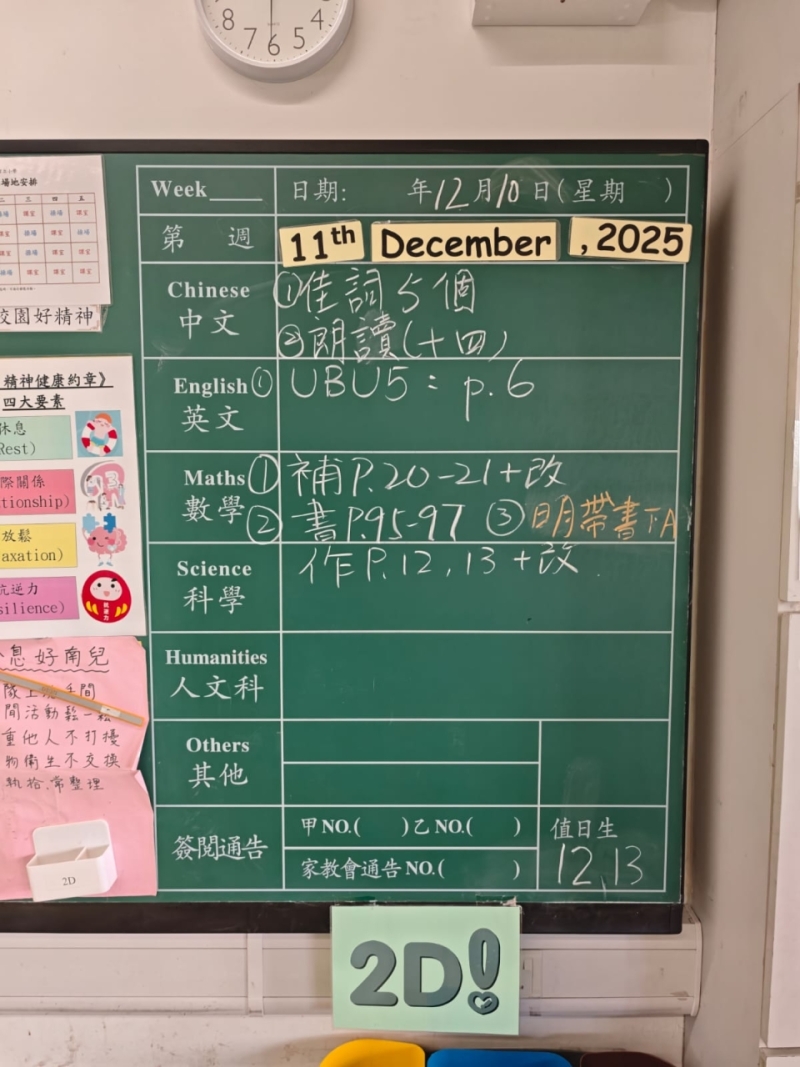 8 7 6 5 4
場地安排
二 三 四 五
校園好精神
精神健康約章》
四大要素
休息
(Rest)
際關係
tionship)
放鬆
axation)
抗逆力
silience)
息好南兒
隊上
間活動鬆一鬆
重他人不打擾
物衞生不交換
執拾.常整理
2D
Week____ 日期: 年12月10日(星期 )
第 週 11th December , 2025
Chinese 中文 ①佳詞5個
②朗讀(十四)
English 英文 ① UBU5: p.6
Maths 數學 ① 補P.20-21+改
② 書P.95-97 ③ 明帶書下A
Science 科學 作P.12,13+改
Humanities 人文科
Others 其他
簽閱通告 甲NO.( )乙NO.( ) 值日生
家教會通告NO.( ) 12,13
2D!